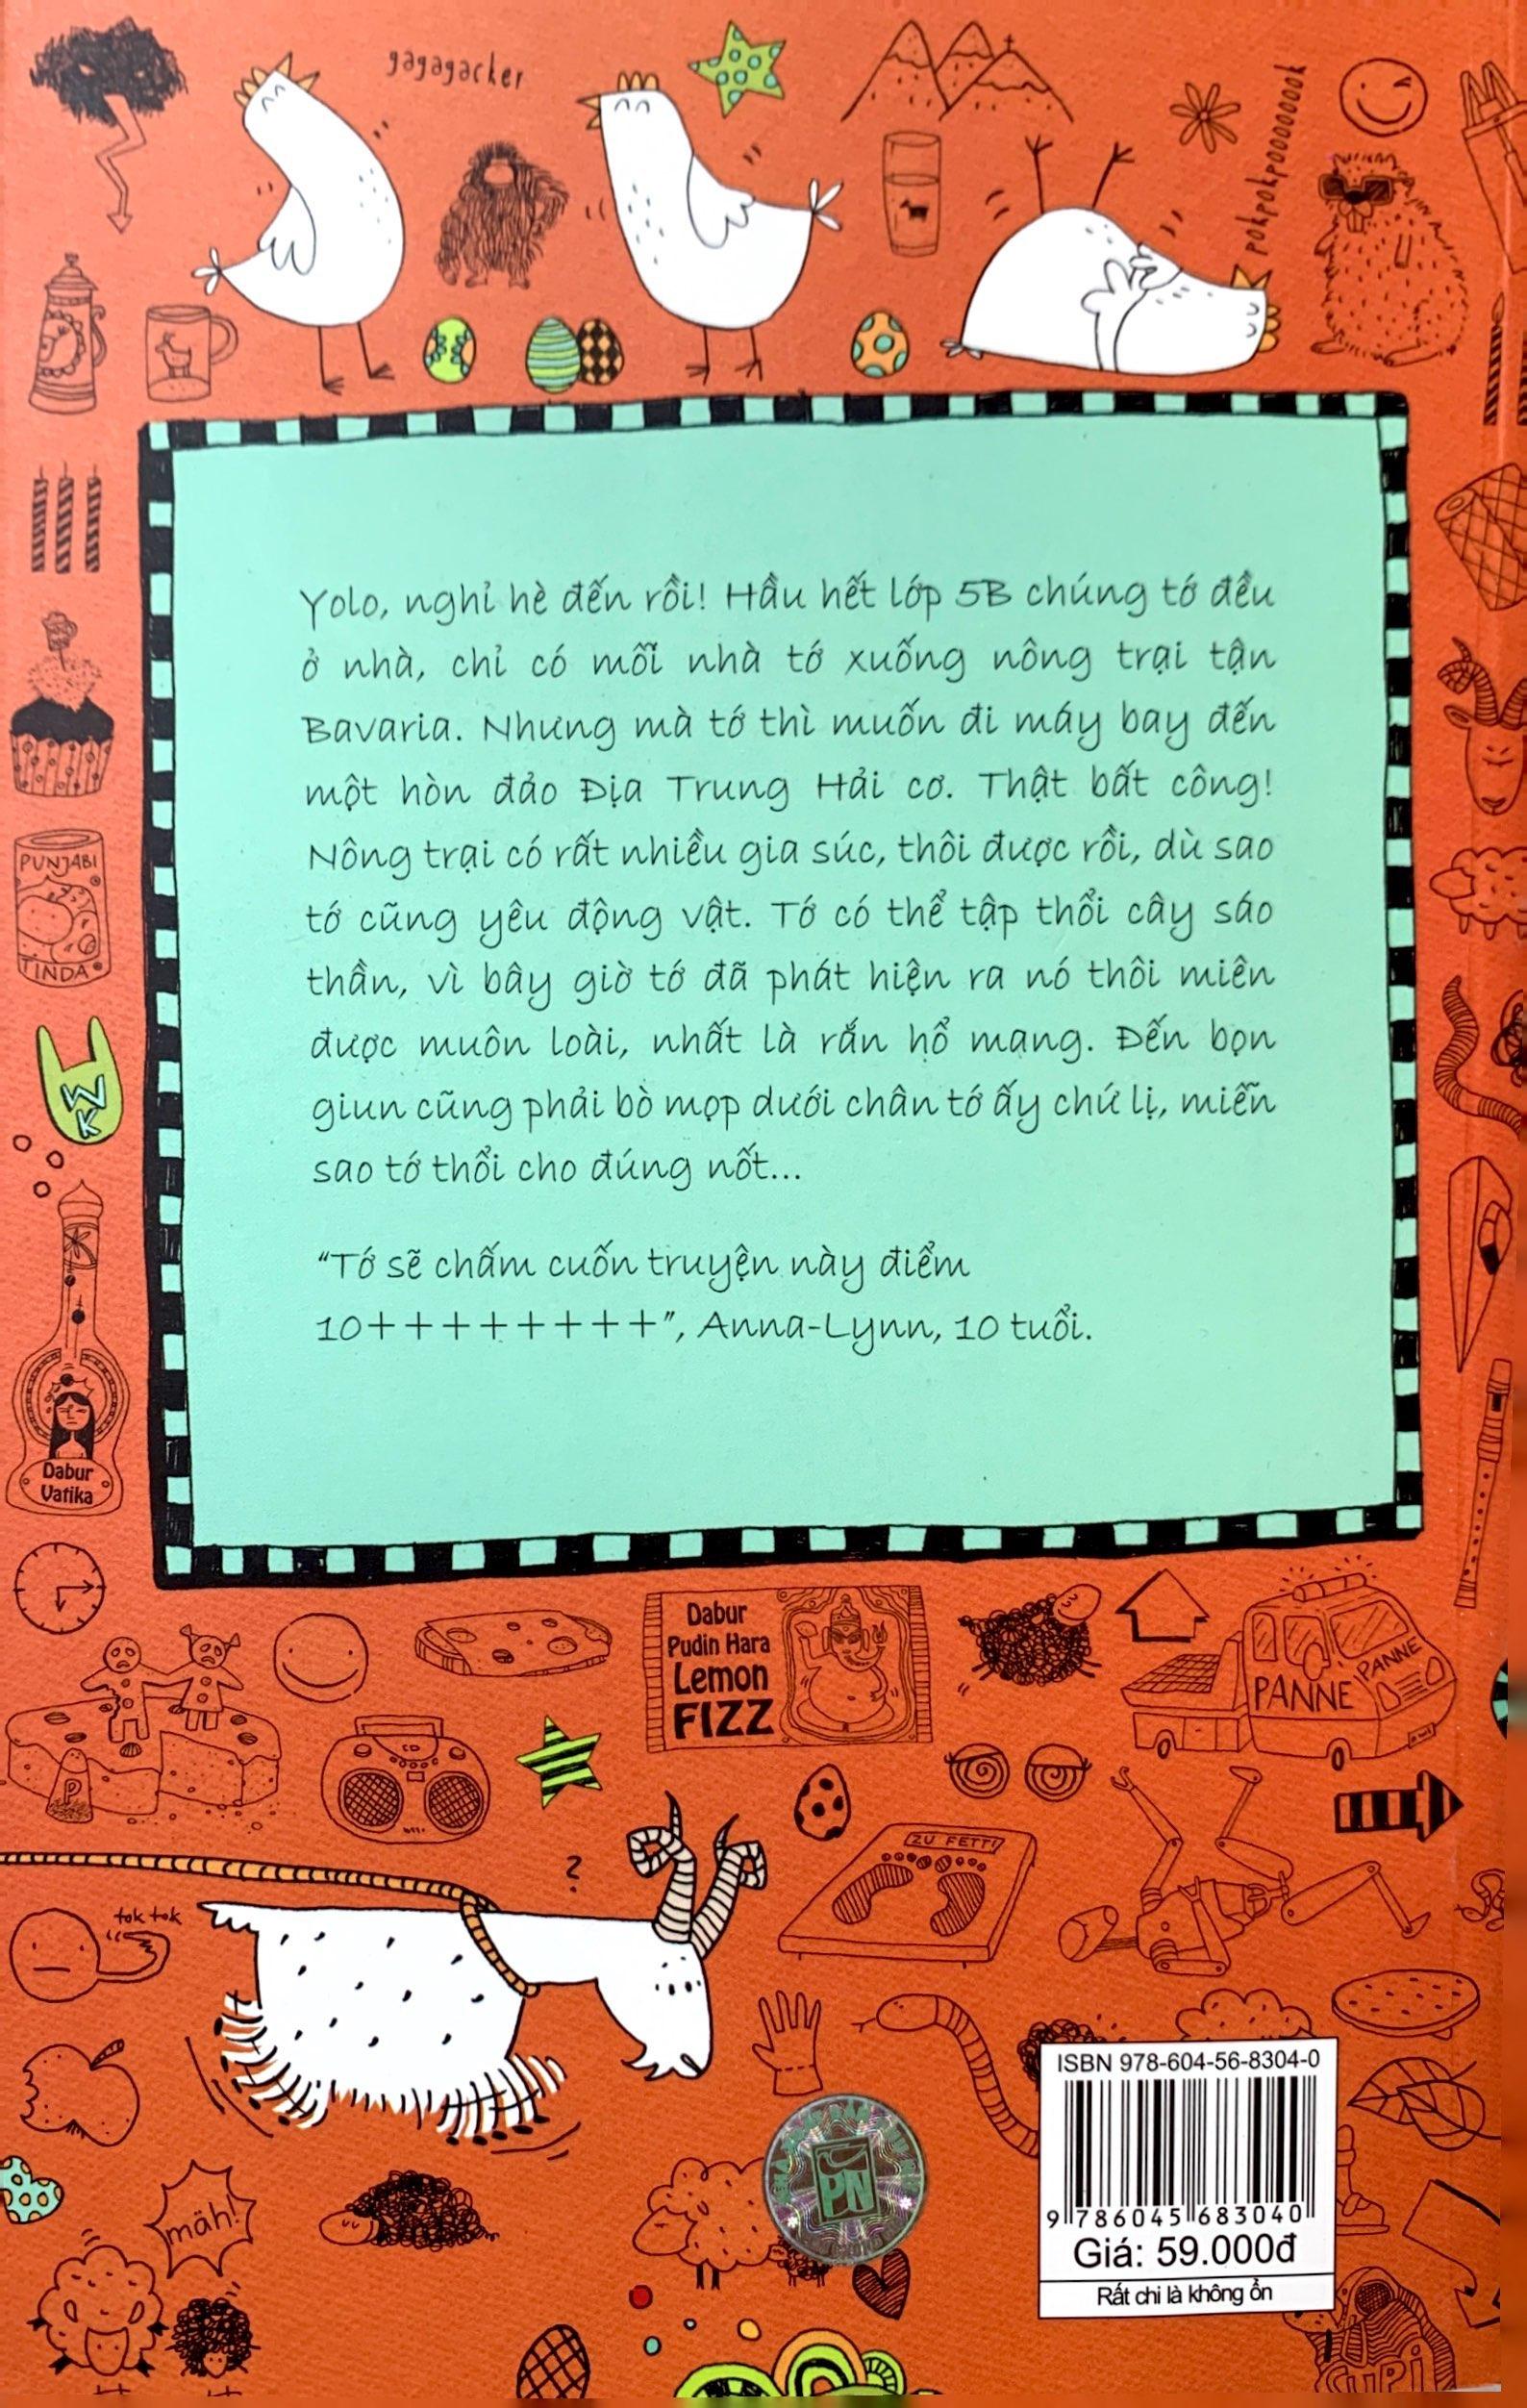 gagagacker
pokpokpooooooook
Yolo, nghỉ hè đến rồi! Hầu hết lớp 5B chúng tớ đều
ở nhà, chỉ có mỗi nhà tớ xuống nông trại tận
Bavaria. Nhưng mà tớ thì muốn đi máy bay đến
một hòn đảo Địa Trung Hải cơ. Thật bất công!
Nông trại có rất nhiều gia súc, thôi được rồi, dù sao
tớ cũng yêu động vật. Tớ có thể tập thổi cây sáo
thần, vì bây giờ tớ đã phát hiện ra nó thôi miên
được muôn loài, nhất là rắn hổ mang. Đến bọn
giun cũng phải bò mọp dưới chân tớ ấy chứ lị, miễn
sao tớ thổi cho đúng nốt...
“Tớ sẽ chấm cuốn truyện này điểm
10+++++++++”, Anna-Lynn, 10 tuổi.
PUNJABI
TINDA
WK
Dabur
Vatika
Dabur
Pudin Hara
Lemon
FIZZ
PANNE
PANNE
CD
P
ZU FETT!
?
tok tok
mäh!
PN
ISBN 978-604-56-8304-0
9 786045 683040
Giá: 59.000đ
Rất chi là không ổn